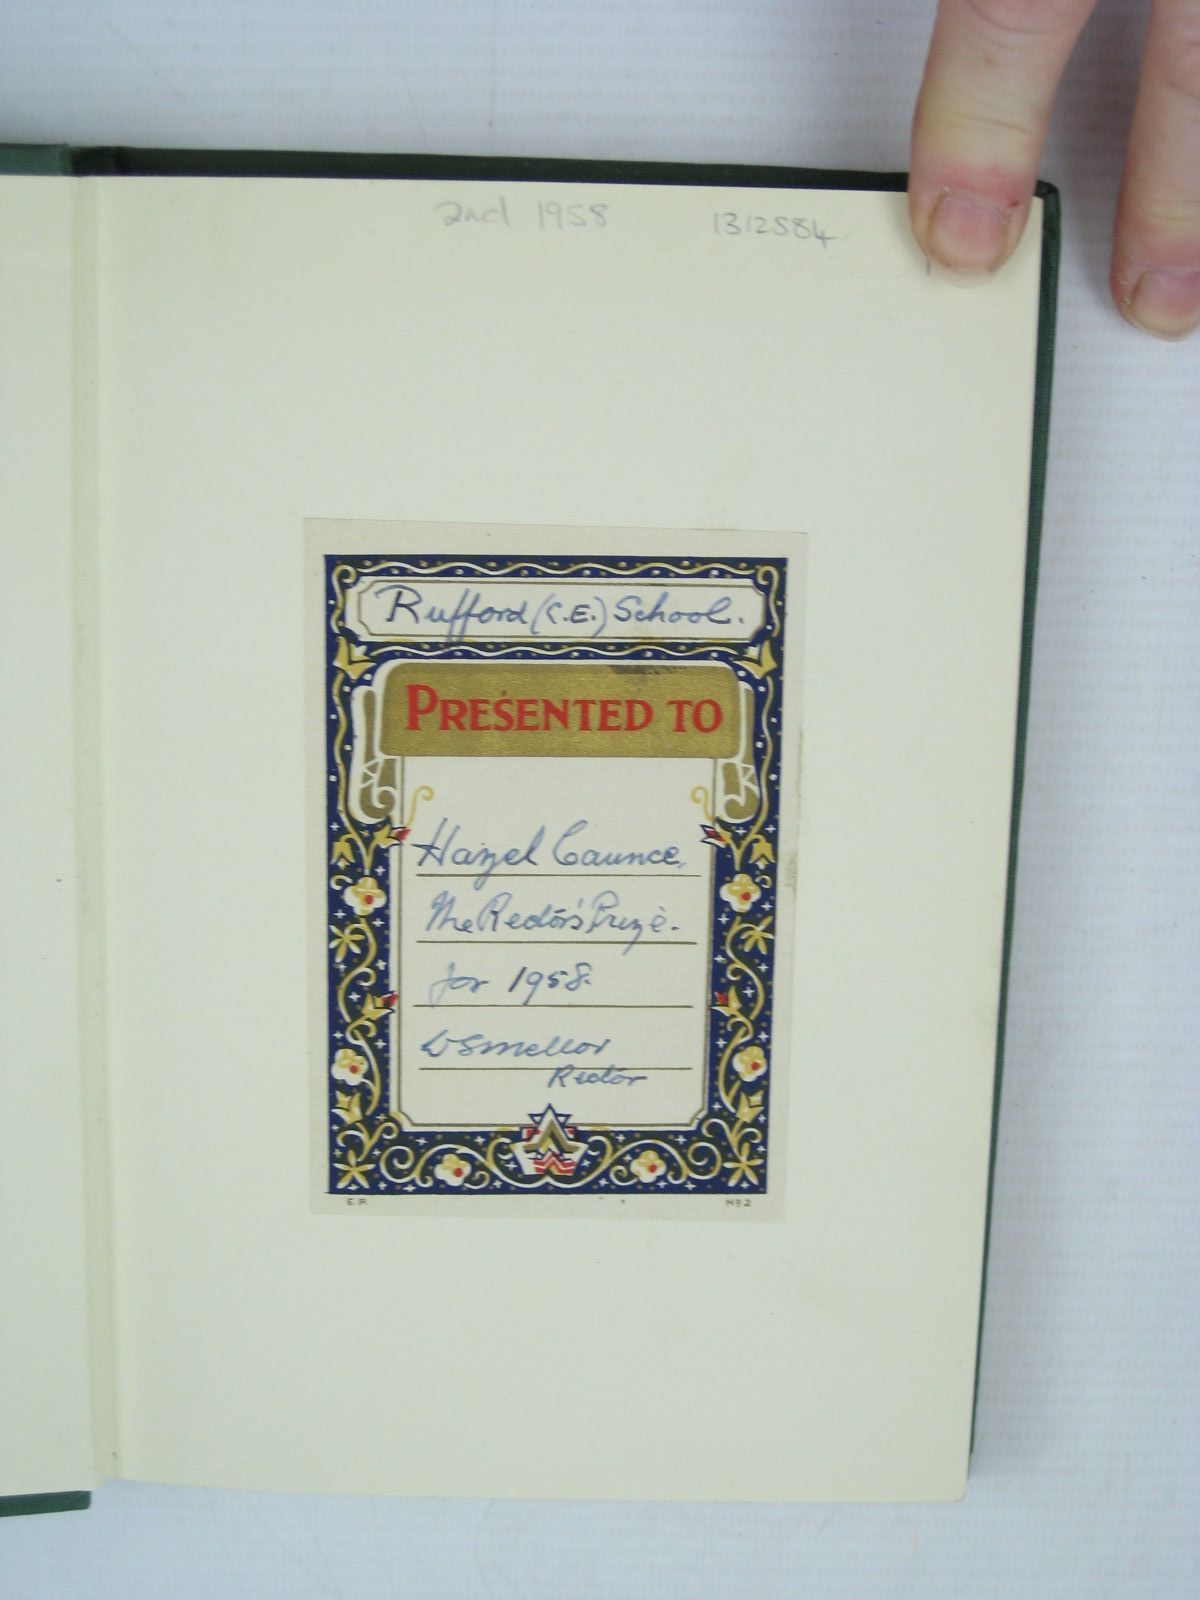 2nd 1958 1312584
Rufford (C.E.) School.
PRESENTED TO
Hazel Caunce,
The Rector's Prize.
for 1958.
Mellor
Rector
E.P. No 2